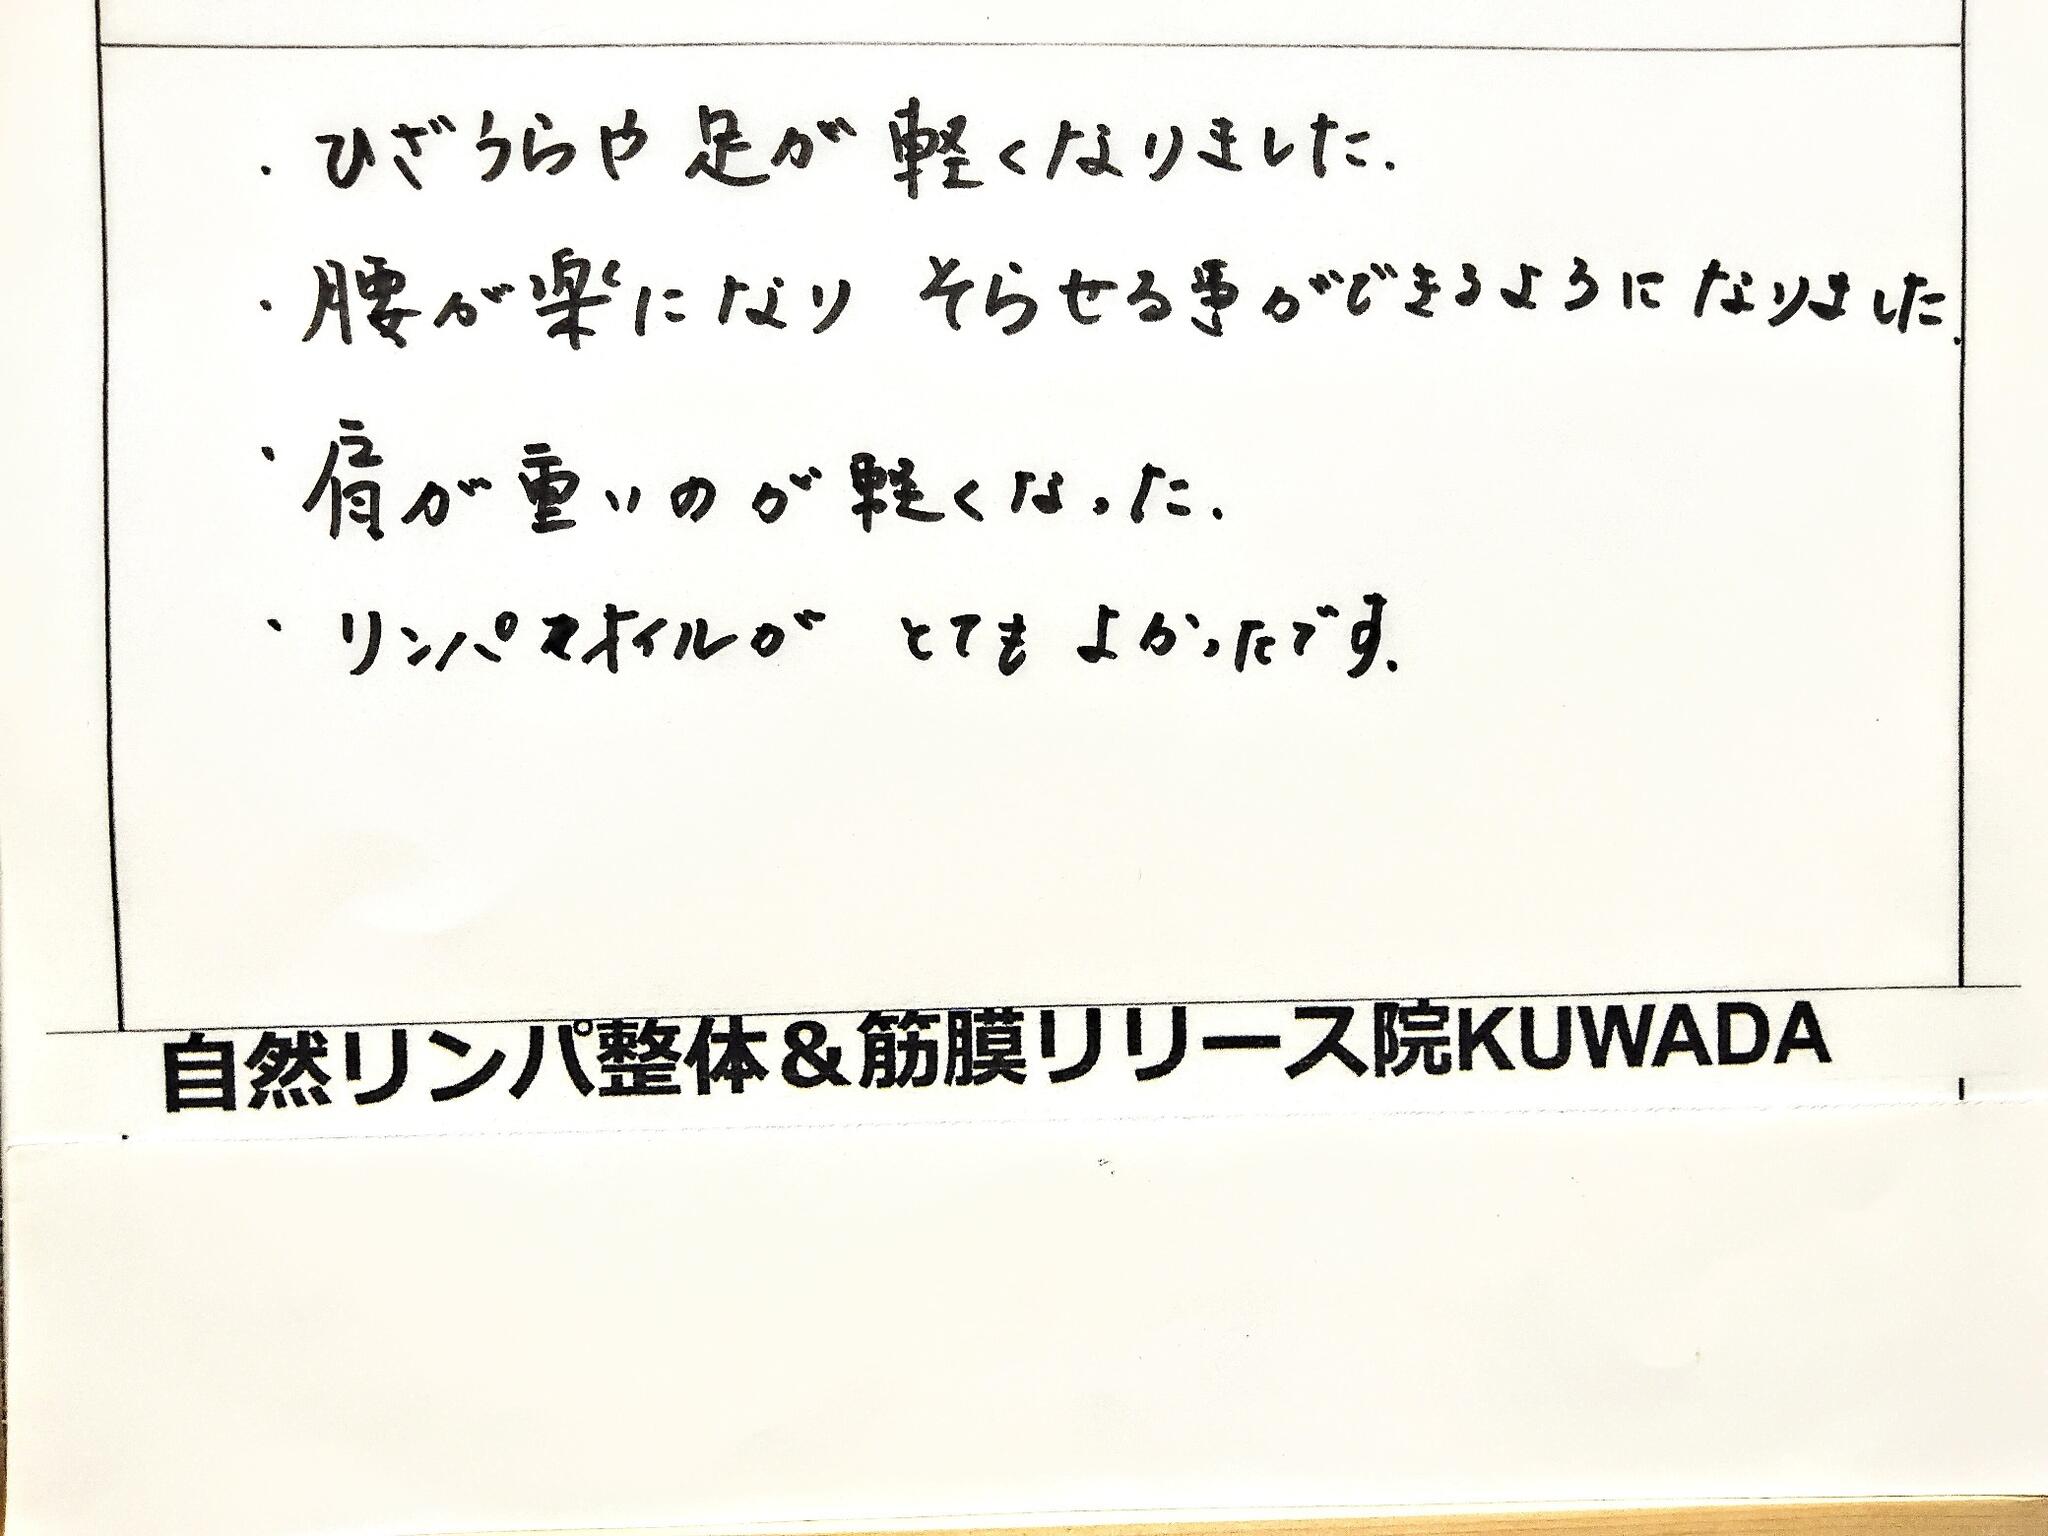 ・ひざうらや足が軽くなりました.
・腰が楽になり そらせる事ができるようになりました.
・肩が重いのが軽くなった.
・リンパオイルが とても よかったです.
自然リンパ整体&筋膜リリース院KUWADA